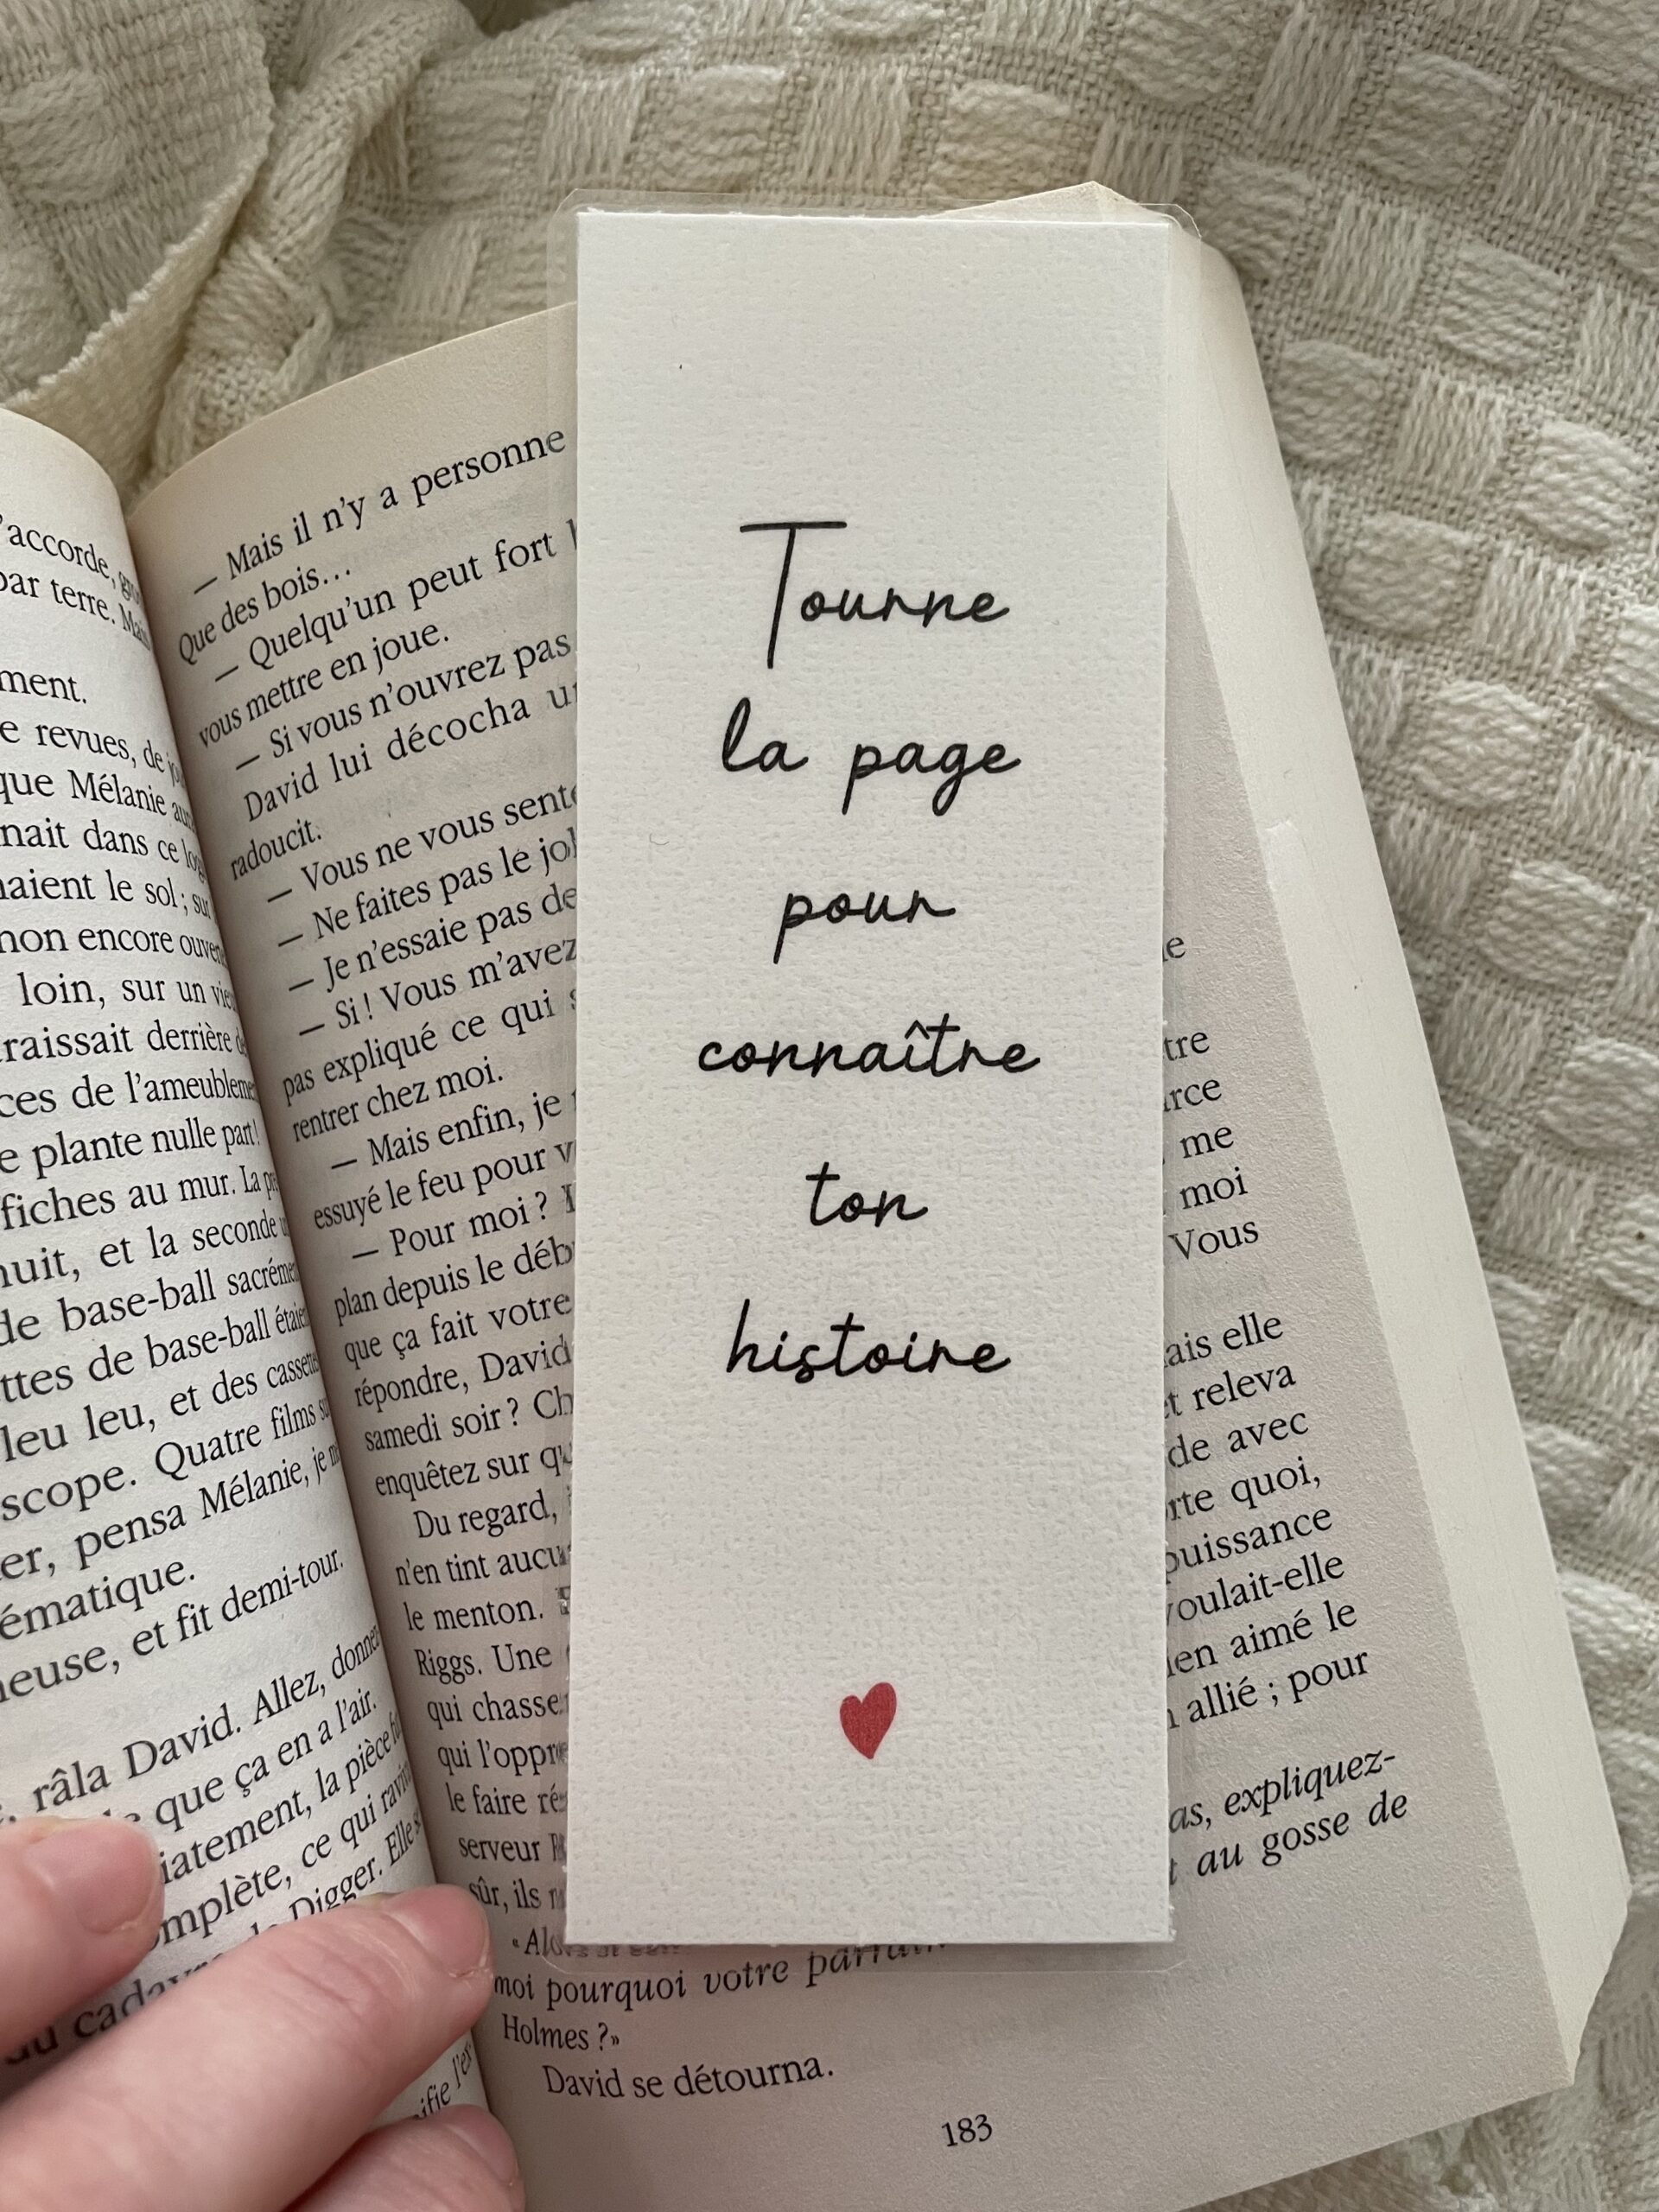 Tourne
la page
pour
connaître
ton
histoire
accorde,
par terre.
ment.
e revues, de
que Mélanie
nait dans ce
le sol; 
non encore
loin, sur un
raissait derrière
ces de l'ameublement
e plante nulle part!
fiches au mur. La
nuit, et la seconde
de base-ball
ttes de base-ball
leu leu, et des
scope. Quatre films
er, pensa Mélanie, je
ématique.
euse, et fit demi-tour.
râla David. Allez,
que ça en a l'air.
iatement, la pièce
mplète, ce qui
Digger. Elle
— Mais il n'y a personne
Que des bois…
— Quelqu'un peut fort
vous mettre en joue.
— Si vous n'ouvrez pas
David lui décocha
radoucit.
— Vous ne vous
— Ne faites pas le
— Je n'essaie pas de
— Si! Vous m'avez
pas expliqué ce qui
rentrer chez moi.
— Mais enfin, je
essuyé le feu pour
— Pour moi?
plan depuis le
que ça fait votre
répondre, David
samedi soir?
enquêtez sur
Du regard,
n'en tint
le menton.
Riggs. Une
qui
qui
le faire
serveur
sûr, ils
tre
rce
me
moi
Vous
ais elle
releva
de avec
rte quoi,
puissance
voulait-elle
en aimé le
allié; pour
as, expliquez-
au gosse de
moi pourquoi votre
Holmes?»
David se détourna.
183